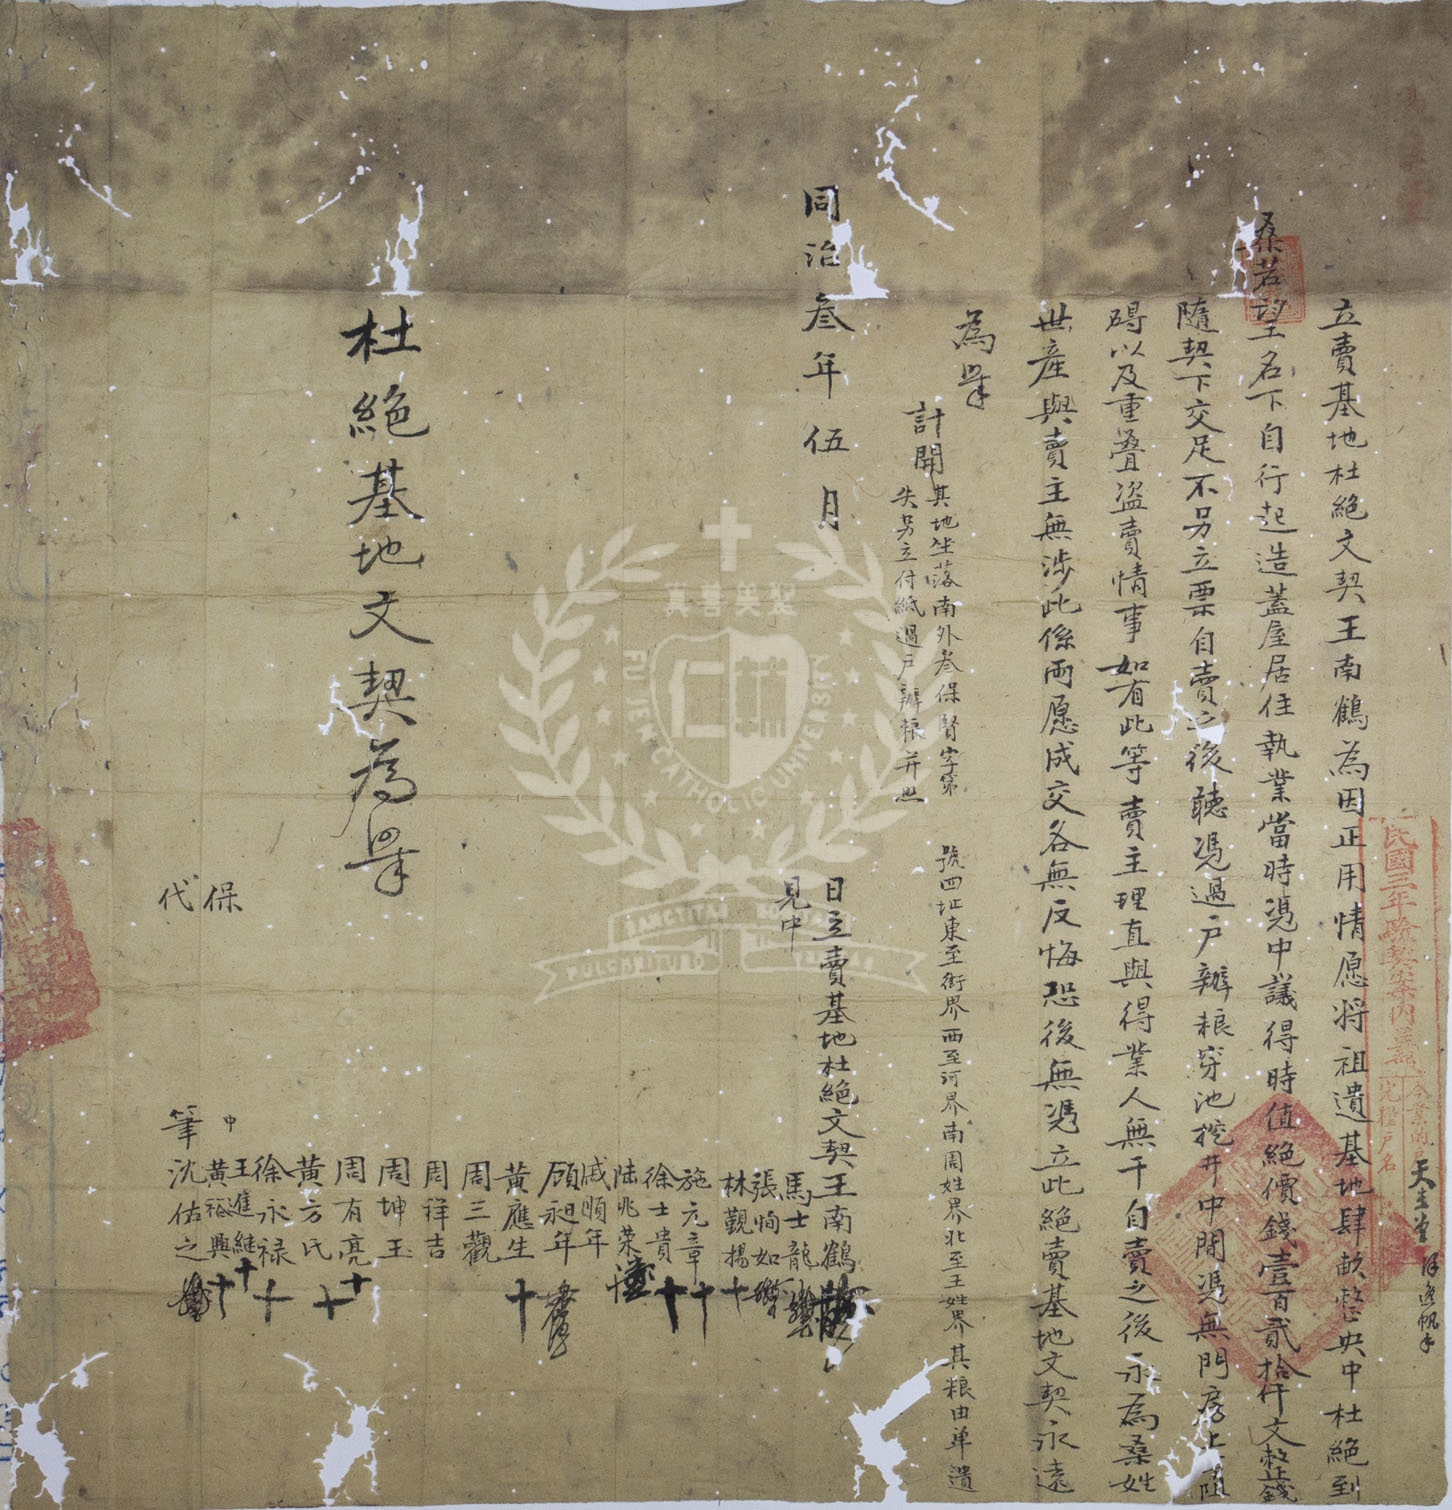 立賣基地杜絕文契王南鶴為因正用情愿將祖遺基地肆畝整央中杜絕到
桑若望名下自行起造蓋屋居住執業當時憑中議得時值絕價錢壹百貳拾仟文整其錢
隨契下交足不另立票自賣之後聽憑過户辦粮穿池挖井中間憑無門房上阻
碍以及重疊盗賣情事如有此等賣主理直與得業人無干自賣之後永為桑姓
世產與賣主無涉此係兩愿成交各無反悔恐後無憑立此絕賣基地文契永遠
為㨿
計開
其地坐落南外叁保賢字第 號四址東至街界西至河界南周姓界北至王姓界其粮由单遺
失另立付紙過户辦粮并照
同治叁年伍月 日立賣基地杜絕文契王南鶴
見中
馬士龍
張恂如
林觀揚
施元章
徐士貴
陆兆荣
戚順年
顾昶年
黃應生
周三觀
周祥吉
周坤玉
周有亮
黃方氏
徐永禄
保
中
王進維
黃裕興
代筆
沈佑之
杜絕基地文契為㨿
民國三年驗契案内
户名
天主堂
真善美聖
FU JEN CATHOLIC UNIVERSITY
SANCTITAS BONITAS
PULCHRITUDO VERITAS